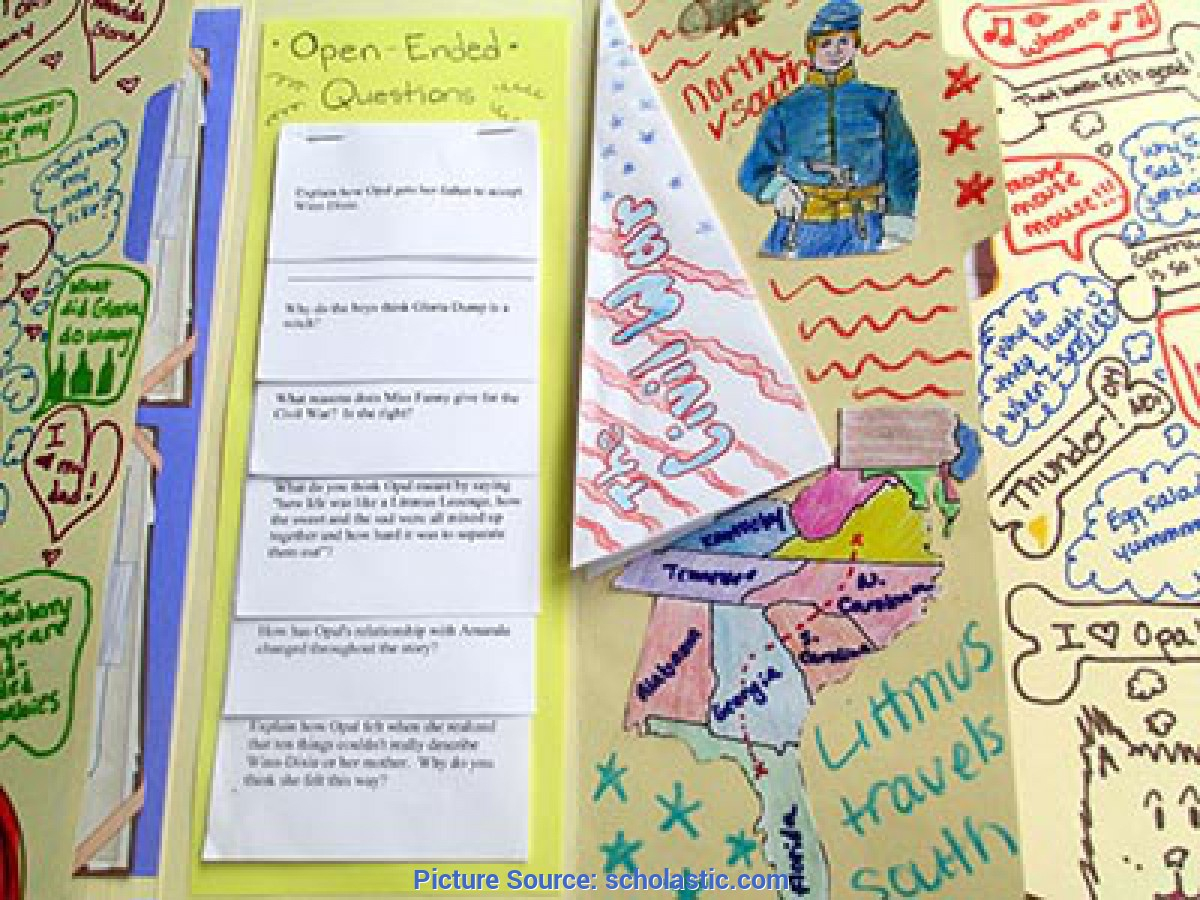 Gloria
my
like?
What
did Gloria
do wrong
I
my
dad!
The
are
• Open-Ended •
Questions
Explain how Opal gets her father to accept
Winn-Dixie.
Why do the boys think Gloria Dump is a
witch?
What reasons does Miss Fanny give for the
Civil War? Is she right?
What do you think Opal meant by saying
"how life was like a Littmus Lozenge, how
the sweet and the sad were all mixed up
together and how hard it was to separate
them out"?
How has Opal's relationship with Amanda
changed throughout the story?
Explain how Opal felt when she realized
that ten things couldn't really describe
Winn-Dixie or her mother. Why do you
think she felt this way?
The Civil War
north
v south
Kentucky
Tennessee
N.
Carolina
S.
Carolina
Alabama
Georgia
Florida
Littmus
travels
south
Whoooo
That felt good!
mouse
mouse
mouse!!!
Why
sad
is so
Why do
they laugh
when I
Thunder!
OH
NO!
Egg salad
yummm
I ♡ Opal
Picture Source: scholastic.com